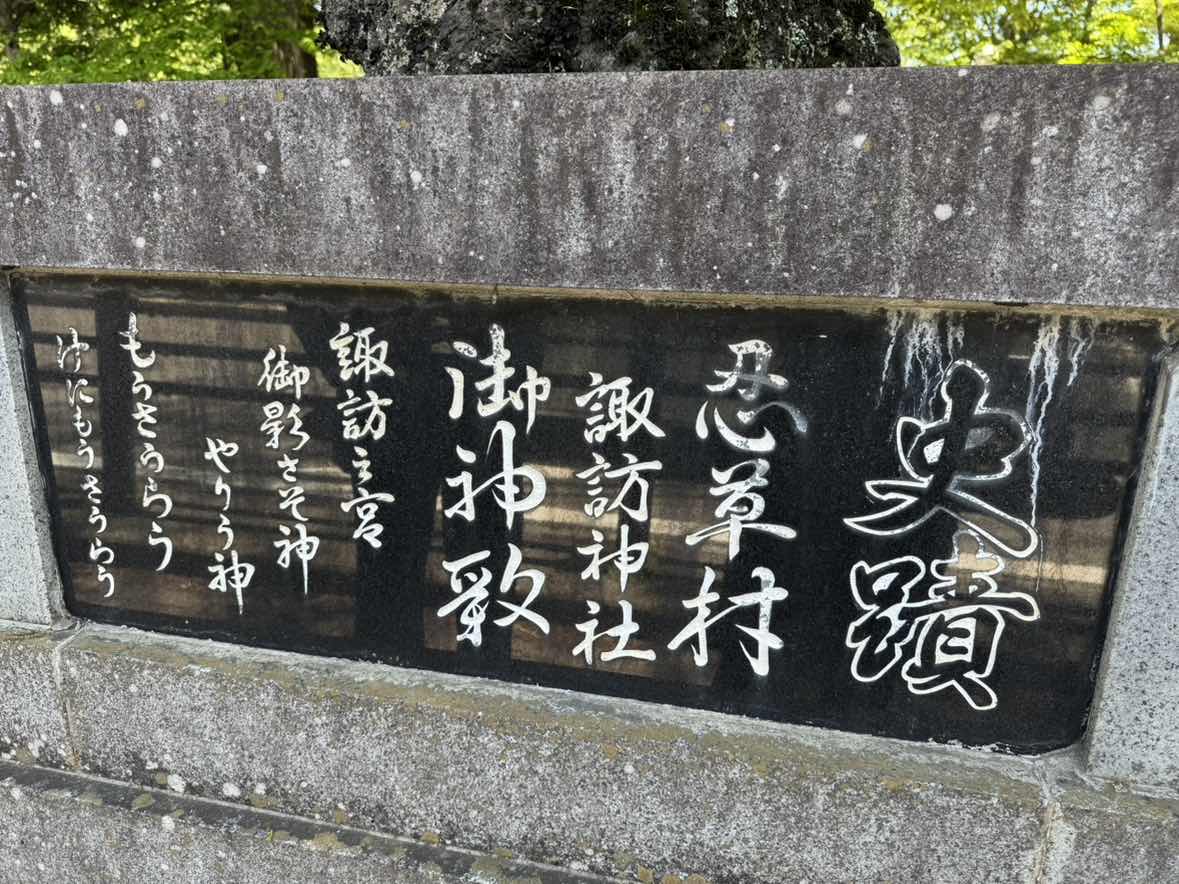 史蹟
忍草村
諏訪神社
御神歌
諏訪之宮
御影さそ神
やりう神
もうさうらう
げにもうさうらう